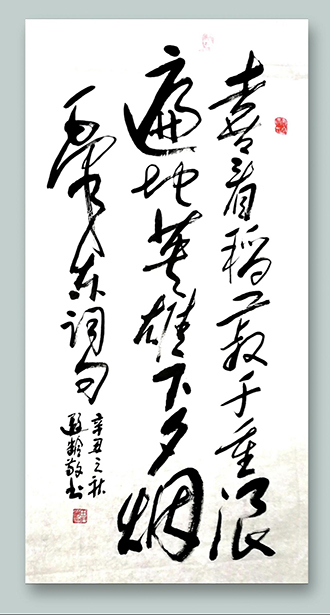 喜看稻菽千重浪
遍地英雄下夕烟
毛泽东词句
辛丑之秋
龄敬书